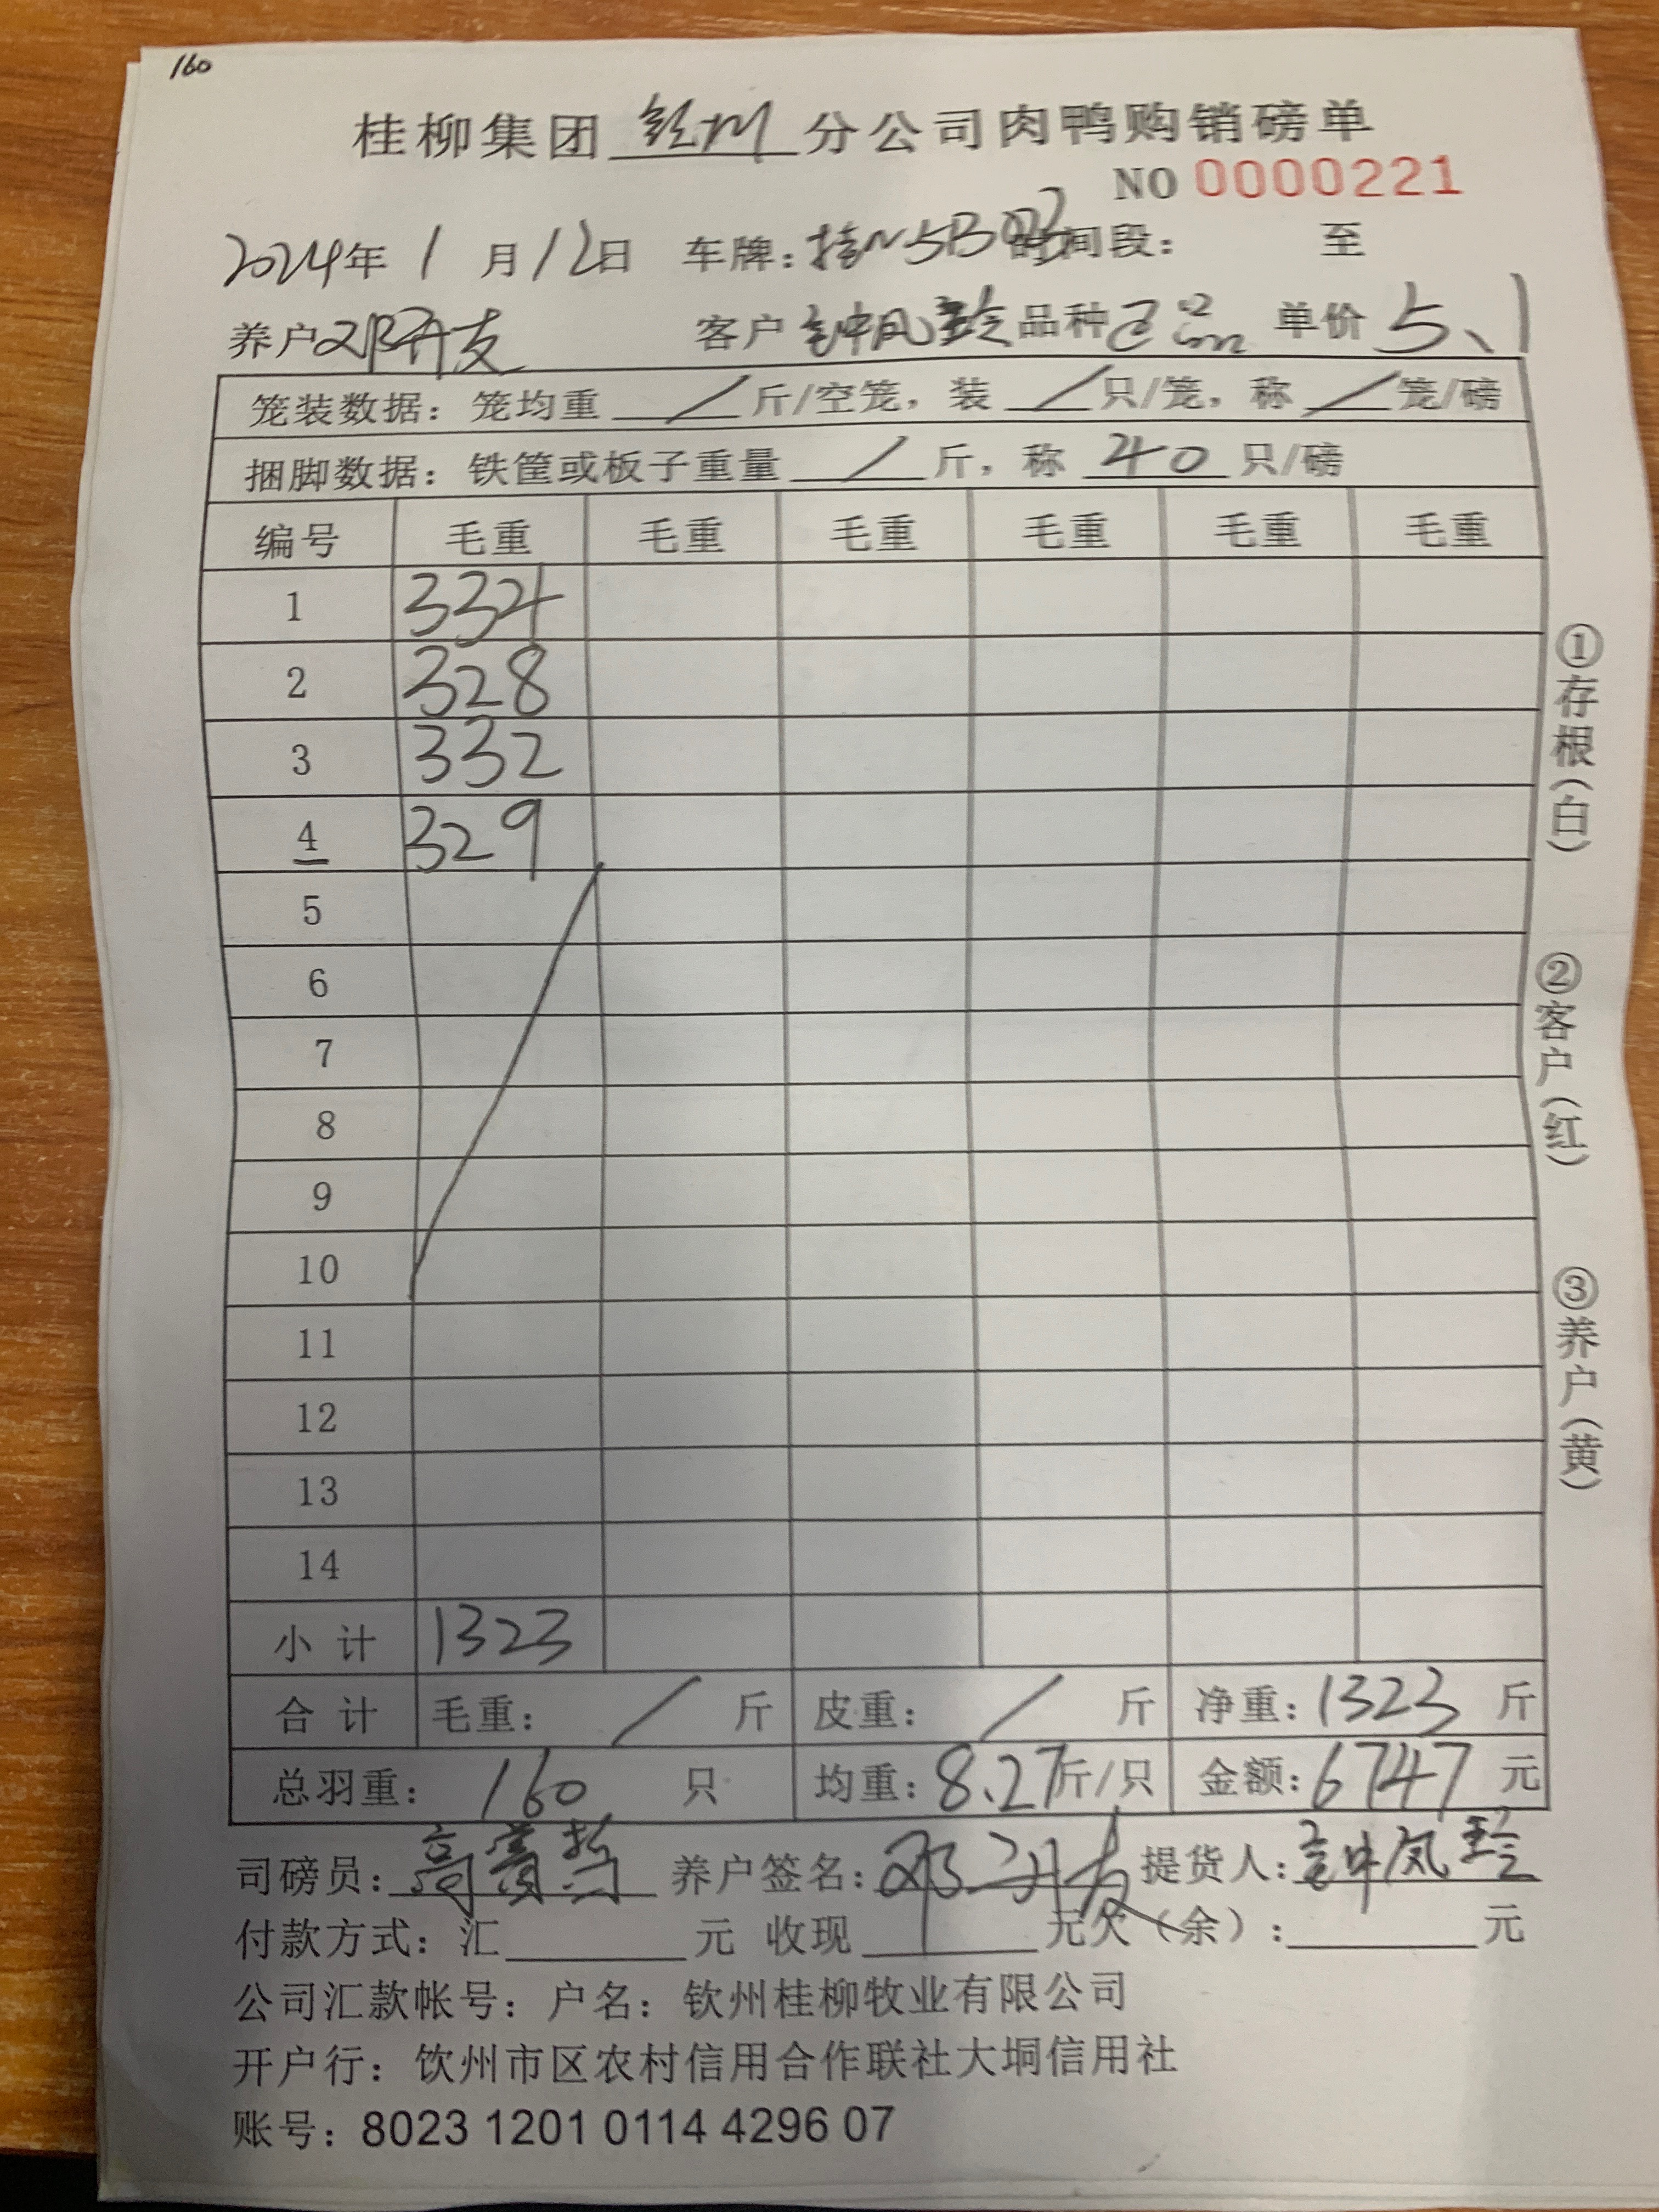 160
桂柳集团 钦州 分公司肉鸭购销磅单
NO 0000221
2024年 1 月 12日 车牌: 桂N5B 时间段: 至
养户 邓开友 客户 钟凤玲 品种 正品 单价 5.1
笼装数据: 笼均重 / 斤/空笼, 装 / 只/笼, 称 / 笼/磅
捆脚数据: 铁筐或板子重量 / 斤, 称 40 只/磅
编号 毛重 毛重 毛重 毛重 毛重 毛重
1 334
2 328
3 332
4 329
5
6
7
8
9
10
11
12
13
14
小计 1323
合计 毛重: / 斤 皮重: / 斤 净重: 1323 斤
总羽重: 160 只 均重: 8.27斤/只 金额: 6747 元
司磅员: 养户签名: 邓开友 提货人: 钟凤玲
付款方式: 汇 元 收现 元欠(余): 元
公司汇款帐号: 户名: 钦州桂柳牧业有限公司
开户行: 钦州市区农村信用合作联社大垌信用社
账号: 8023 1201 0114 4296 07
①存根(白)
②客户(红)
③养户(黄)